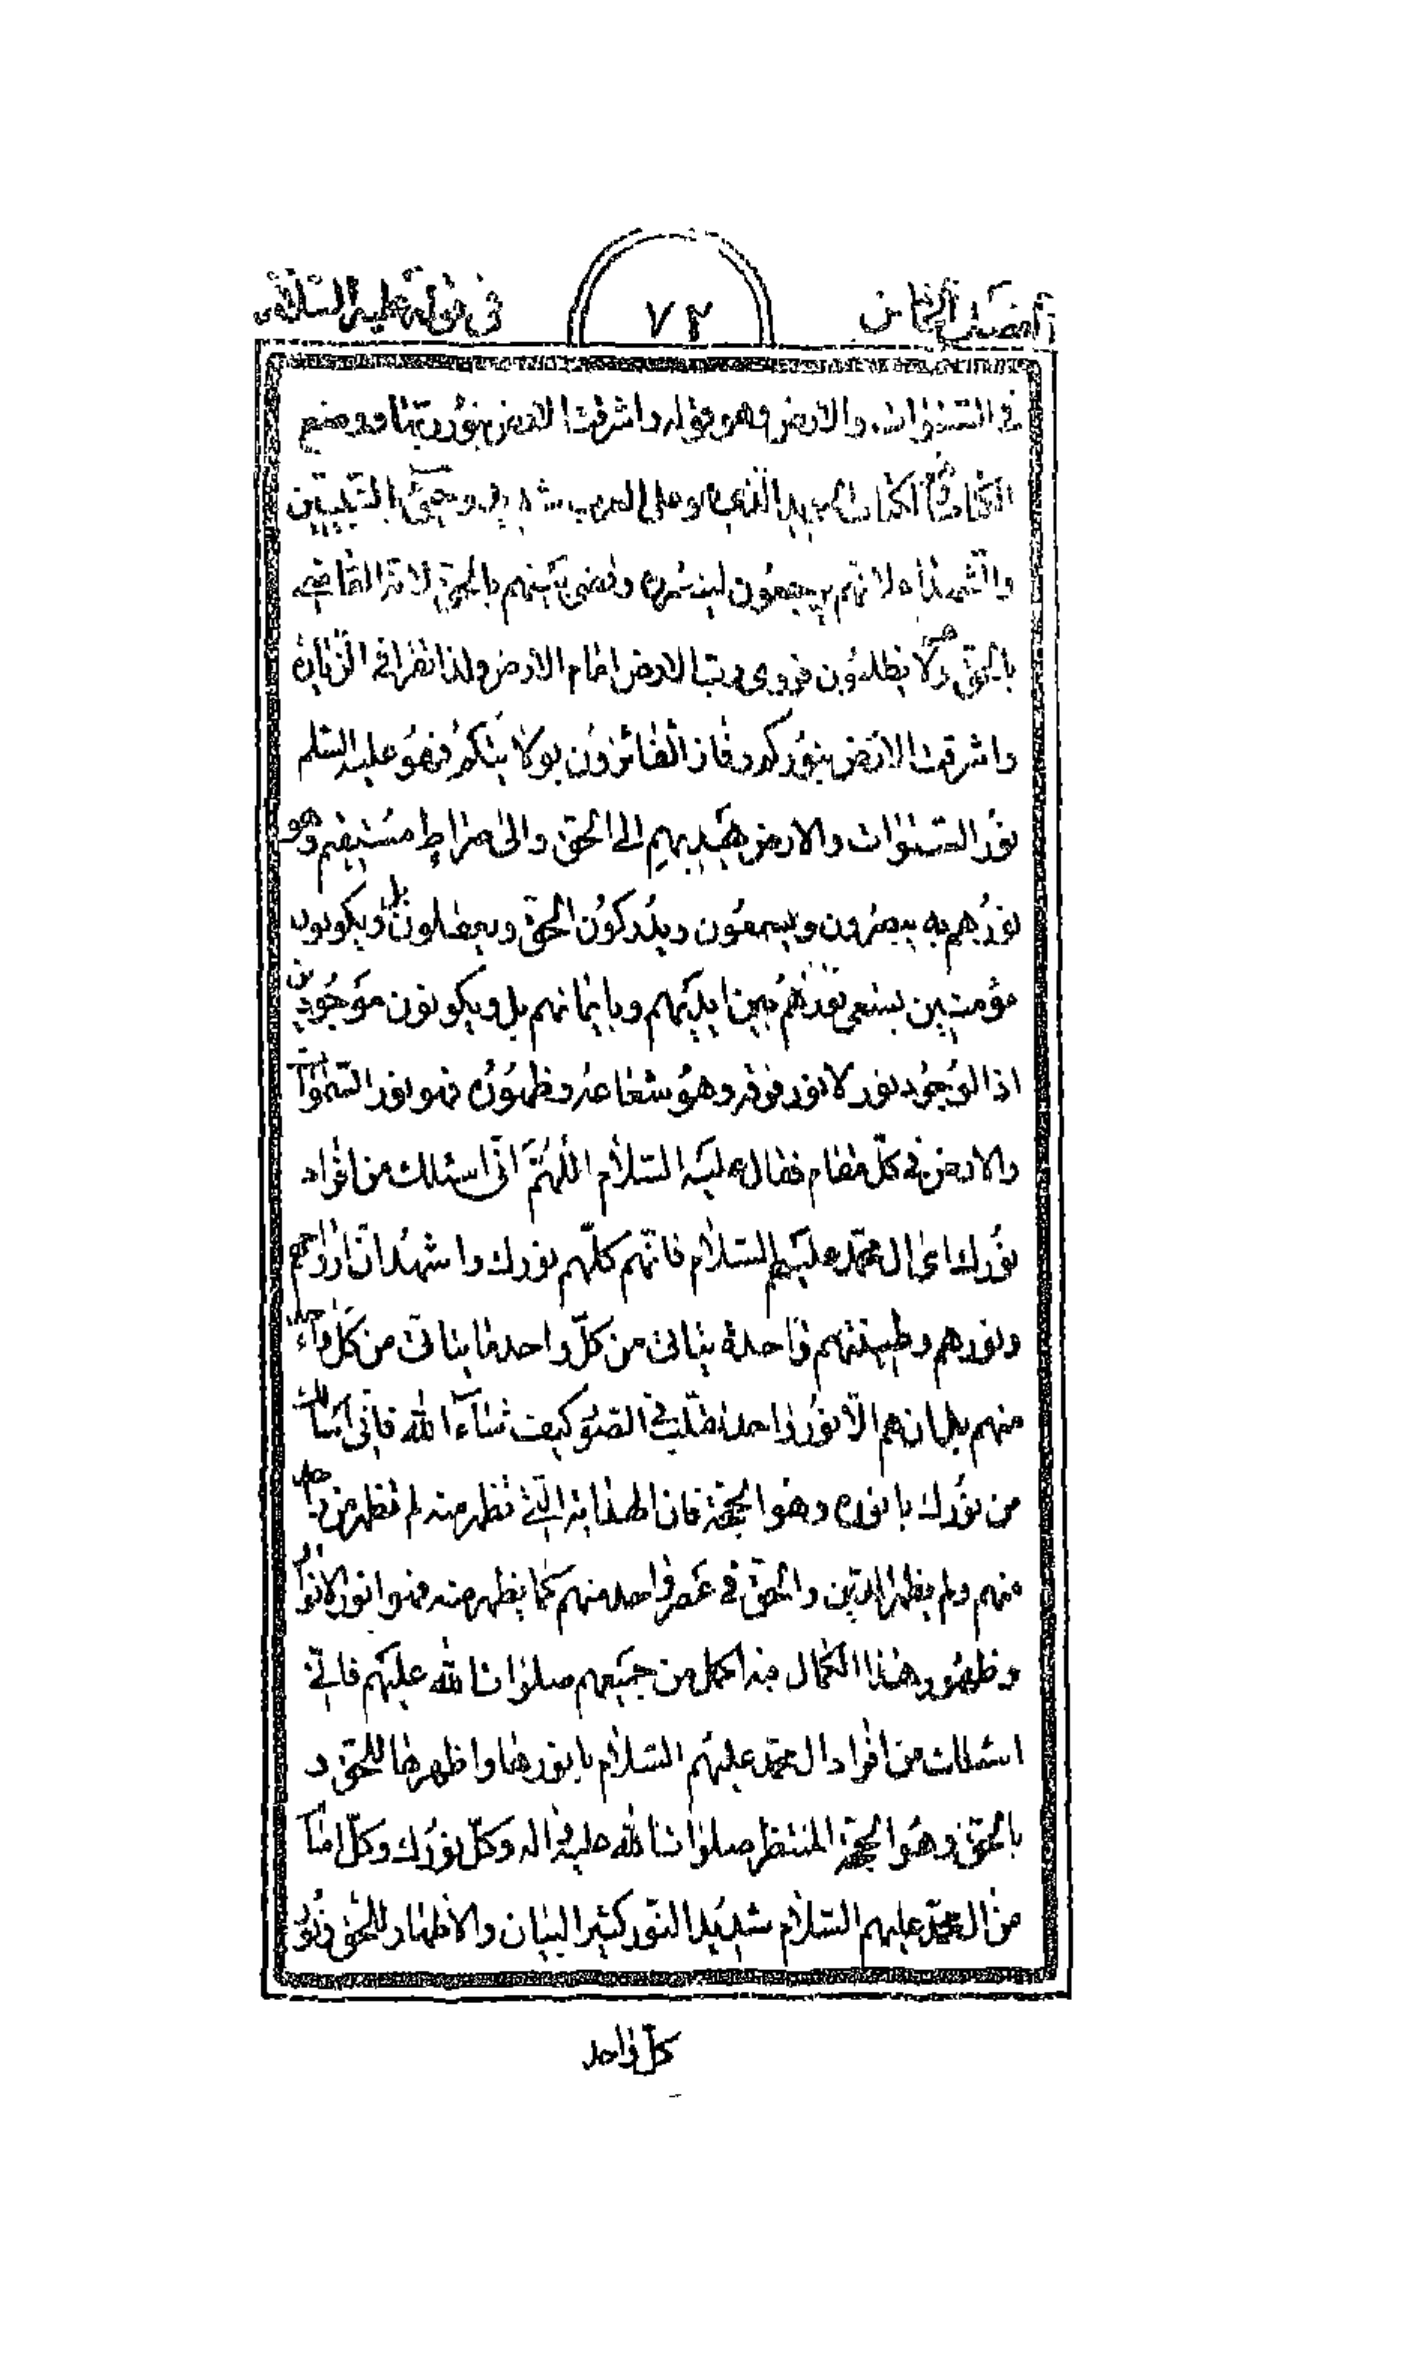 الفصل الخامس
٧٢
في قوله عليه السلام
في السموات والارض وهو قوله واشرقت الارض بنور ربها ووضع
الكتاب الكتاب الذي وجيئ بالنبيين
والشهداء لانهم يرجعون لينصروه وقضى بينهم بالحق لانه القاضي
بالحق وهم لا يظلمون فروى رب الارض امام الارض ولذا نقرا في الزيارة
واشرقت الارض بنوركم وفاز الفائزون بولايتكم فهو عليه السلم
نور السموات والارض يهديهم الى الحق والى صراط مستقيم وهو
نورهم به يبصرون ويسمعون ويدركون الحق ويعقلون بل ويكونون
مؤمنين يسعى نورهم بين ايديهم وبايمانهم بل ويكونون موجودين
اذ الوجود نور لا نور فوقه وهو شعاعه وظهوره فهو نور السموات
والارض في كل مقام فقال عليه السلام اللهم اني اسئلك من افراد
نورك اي ال محمد عليهم السلام فانهم كلهم نورك واشهد ان ارواحهم
ونورهم وطينتهم واحدة يتاتى من كل واحد ما يتاتى من كل واحد
منهم بل ان هم الا نور واحد تقلب في الصور كيف شاء الله فاني اسئلك
من نورك بانوره وهو الحجة فان الهداية التي تظهر منه لم تظهر من واحد
منهم ولم يظهر الدين والحق في عصر واحد منهم كما يظهر منه فهو انور الانوار
وظهور هذا الكمال منه اكمل من جميعهم صلوات الله عليهم فاني
اسئلك من افراد ال محمد عليهم السلام بانورها واظهرها للحق و
بالحق وهو الحجة المنتظر صلوات الله عليه واله وكل نورك وكل امام
من ال محمد عليهم السلام شديد النور كثير البيان والاظهار للحق ونور
كل واحد